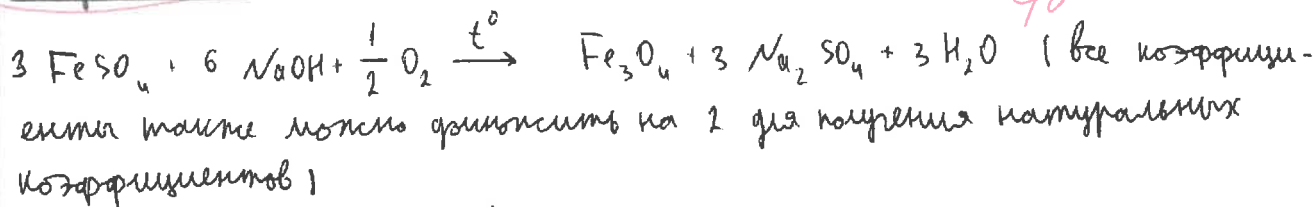 3 FeSO₄ + 6 NaOH + 1/2 O₂ →(t°) Fe₃O₄ + 3 Na₂SO₄ + 3 H₂O (все коэффици-
енты также можно домножить на 2 для получения натуральных
коэффициентов)